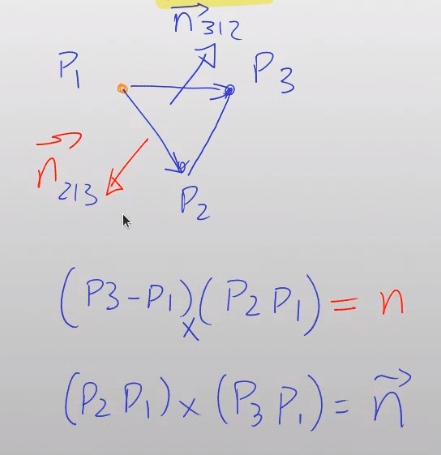 n⃗312
P1
P3
n⃗213
P2
(P3-P1)x(P2 P1) = n
(P2 P1) x (P3 P1) = n⃗